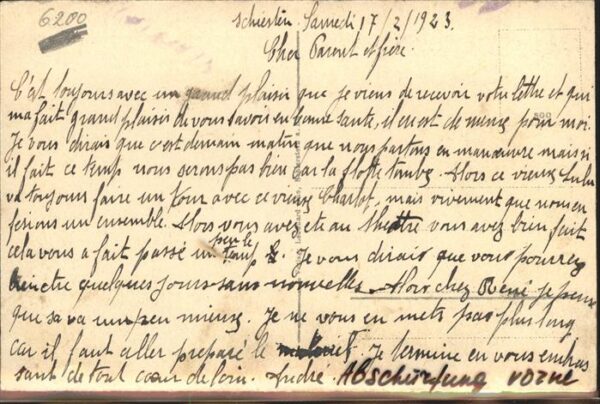 6200
Schierstein. Samedi 17/2/1923.
Cher Parent et frère
C'est toujours avec un grand plaisir que je viens de recevoir votre lettre et qui
ma fait grand plaisir de vous savoir en bonne santé, il en est de meme pour moi.
Je vous dirais que c'est demain matin que nous partons en manœuvre mais si
il fait ce temp nous serons pas bien car la flotte tombe. Alors ce vieux Lulu
va toujours faire un tour avec ce vieux Charlot, mais vivement que nous en
fesions un ensemble. Alors vous avez été au théâtre vous avez bien fait
cela vous a fait passé un peu le temp. Je vous dirais que vous pourrez
être quelques jours sans nouvelles. Alors chez René je pense
que sa va un peu mieux. Je ne vous en mets pas plus long
car il faut aller preparé le Je termine en vous embras
sant de tout cœur de loin. André. Abschürfung vorne